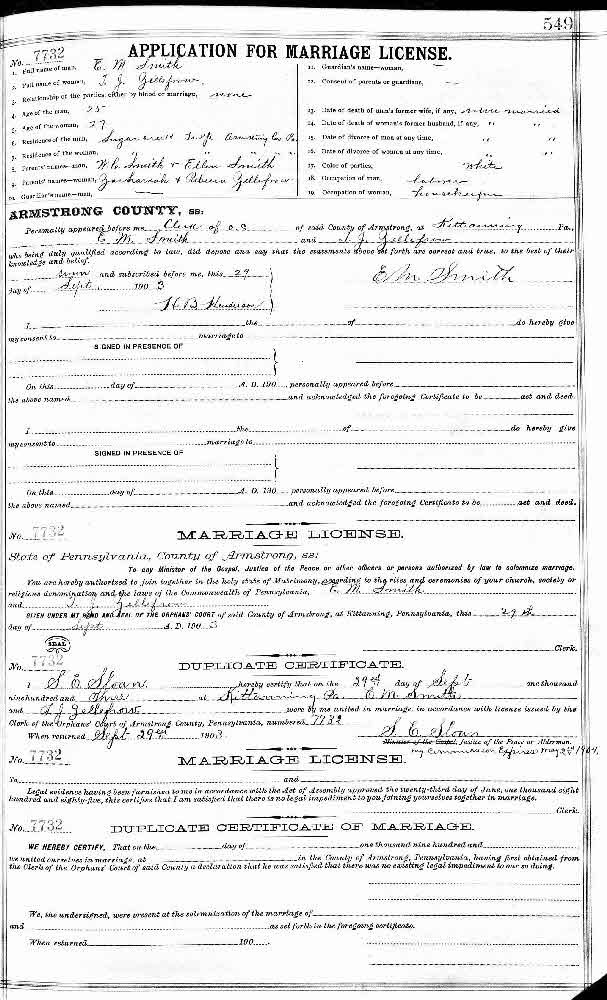 549
No. 7732 APPLICATION FOR MARRIAGE LICENSE.
1. Full name of man, E. M. Smith
2. Full name of woman, T. J. Zellefrow
3. Relationship of the parties, either by blood or marriage, none
4. Age of the man, 25
5. Age of the woman, 27
6. Residence of the man, Sugarcreek Twp Armstrong Co Pa.
7. Residence of the woman, " " "
8. Parents' names—man, W. C. Smith & Ellen Smith
9. Parents' names—woman, Zachariah & Rebecca Zellefrow
10. Guardian's name—man,
11. Guardian's name—woman,
12. Consent of parents or guardians,
13. Date of death of man's former wife, if any, never married
14. Date of death of woman's former husband, if any, " "
15. Date of divorce of man at any time, " "
16. Date of divorce of woman at any time, " "
17. Color of parties, White
18. Occupation of man, laborer
19. Occupation of woman, housekeeper
ARMSTRONG COUNTY, ss:
Personally appeared before me Clerk of O. C. of said County of Armstrong, at Kittanning Pa.,
E. M. Smith and T. J. Zellefrow
who being duly qualified according to law, did depose and say that the statements above set forth are correct and true, to the best of their
knowledge and belief.
sworn and subscribed before me, this 29 E M Smith
day of Sept. 1903
H B Henderson
I the of do hereby give
my consent to marriage to
SIGNED IN PRESENCE OF
On this day of A. D. 190 personally appeared before
the above named and acknowledged the foregoing Certificate to be act and deed.
I the of do hereby give
my consent to marriage to
SIGNED IN PRESENCE OF
On this day of A. D. 190 personally appeared before
the above named and acknowledged the foregoing Certificate to be act and deed.
No. 7732 MARRIAGE LICENSE.
State of Pennsylvania, County of Armstrong, ss:
To any Minister of the Gospel, Justice of the Peace or other officers or persons authorized by law to solemnize marriage.
You are hereby authorized to join together in the holy state of Matrimony, according to the rites and ceremonies of your church, society or
religious denomination and the laws of the Commonwealth of Pennsylvania, E. M. Smith
and T. J. Zellefrow
GIVEN UNDER MY HAND AND SEAL OF THE ORPHANS' COURT of said County of Armstrong, at Kittanning, Pennsylvania, this 29th
day of Sept A. D. 1903
SEAL
Clerk.
No. 7732 DUPLICATE CERTIFICATE.
I S. E. Sloan hereby certify that on the 29th day of Sept one thousand
nine hundred and Three at Kittanning Pa. E. M. Smith
and T J Zellefrow were by me united in marriage, in accordance with license issued by the
Clerk of the Orphans' Court of Armstrong County, Pennsylvania, numbered 7732
When returned Sept 29th 1903. S. E. Sloan
Minister of the Gospel, Justice of the Peace or Alderman.
my Commission Expires May 2nd 1904.
No. 7732 MARRIAGE LICENSE.
To and
Legal evidence having been furnished to me in accordance with the Act of Assembly approved the twenty-third day of June, one thousand eight
hundred and eighty-five, this certifies that I am satisfied that there is no legal impediment to you joining yourselves together in marriage.
Clerk.
No. 7732 DUPLICATE CERTIFICATE OF MARRIAGE.
WE HEREBY CERTIFY, That on the day of one thousand nine hundred and
we united ourselves in marriage, at in the County of Armstrong, Pennsylvania, having first obtained from
the Clerk of the Orphans' Court of said County a declaration that he was satisfied that there was no existing legal impediment to our so doing.
We, the undersigned, were present at the solemnization of the marriage of
and as set forth in the foregoing certificate.
When returned 190